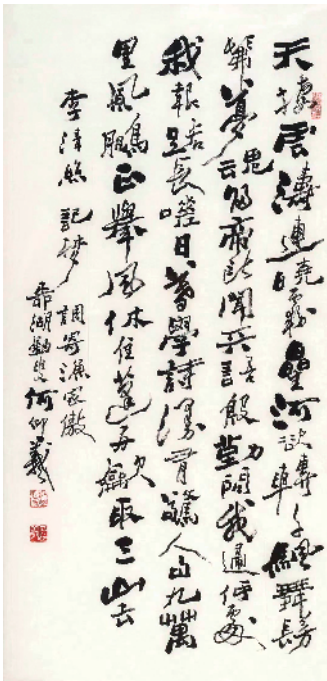 天接雲濤連曉霧星河欲轉千帆舞髣
髴夢魂歸帝所聞天語殷勤問我歸何處
我報路長嗟日暮學詩漫有驚人句九萬
里風鵬正舉風休住蓬舟吹取三山去
李清照記夢調寄漁家傲
湖叟何仰羲